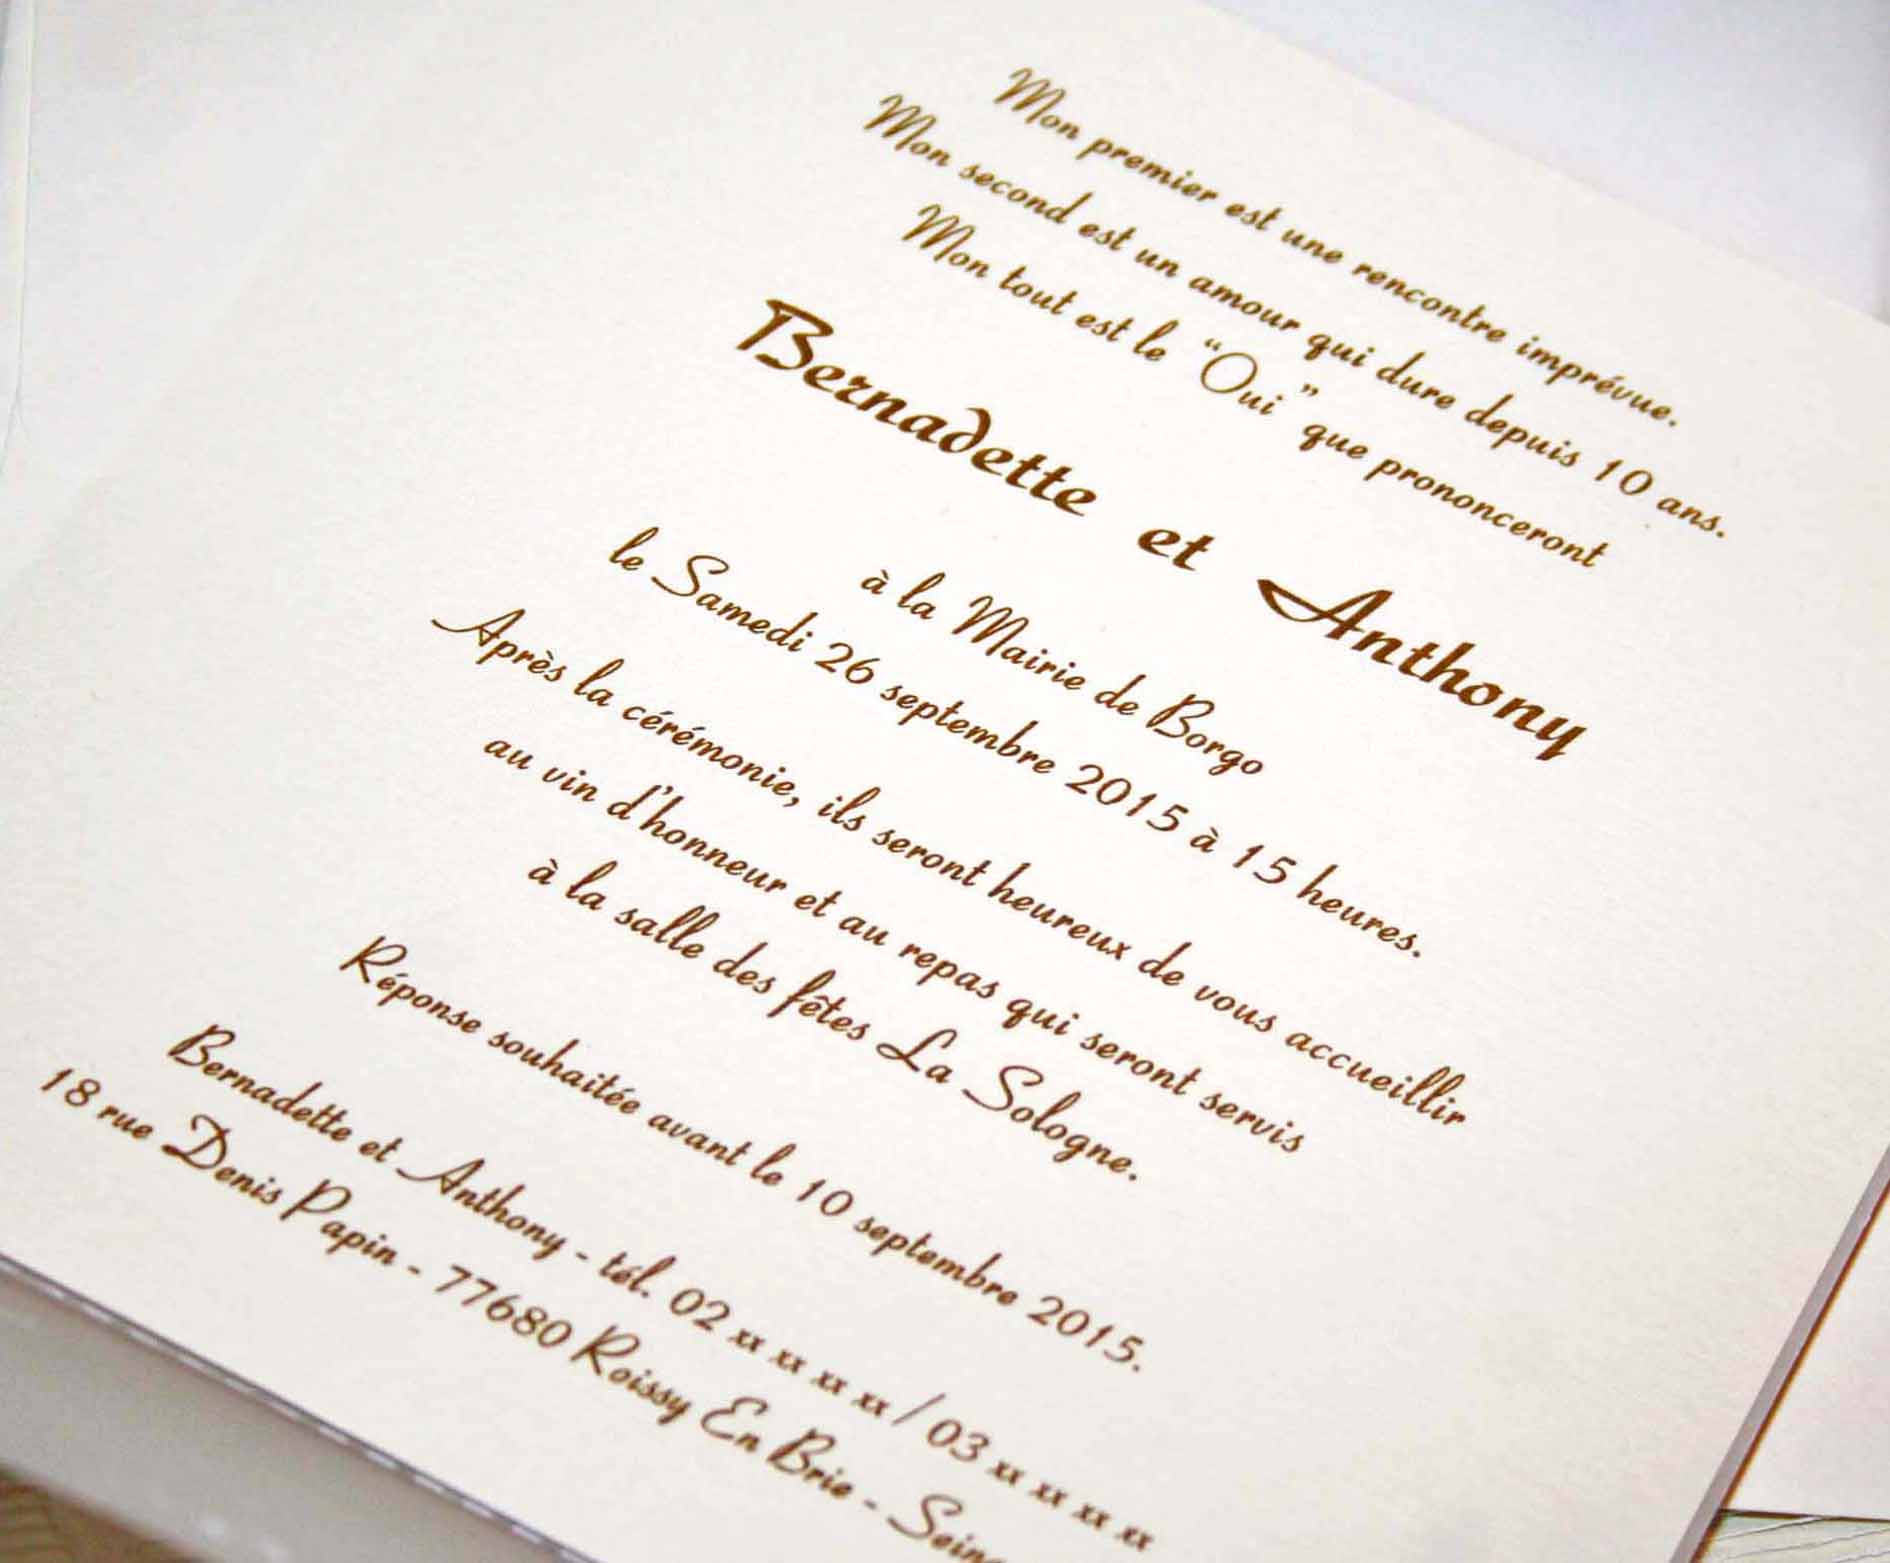 Mon premier est une rencontre imprévue.
Mon second est un amour qui dure depuis 10 ans.
Mon tout est le “Oui” que prononceront
Bernadette et Anthony
à la Mairie de Borgo
le Samedi 26 septembre 2015 à 15 heures.
Après la cérémonie, ils seront heureux de vous accueillir
au vin d'honneur et au repas qui seront servis
à la salle des fêtes La Sologne.
Réponse souhaitée avant le 10 septembre 2015.
Bernadette et Anthony - tél. 02 xx xx xx xx / 03 xx xx xx xx
18 rue Denis Papin - 77680 Roissy En Brie - Seine